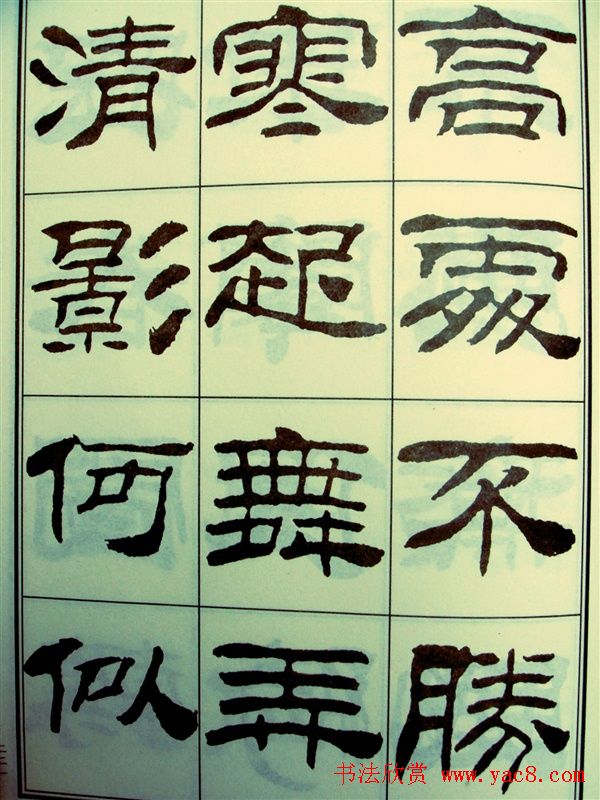 高處不勝
寒起舞弄
清影何似
书法欣赏 www.yac8.com